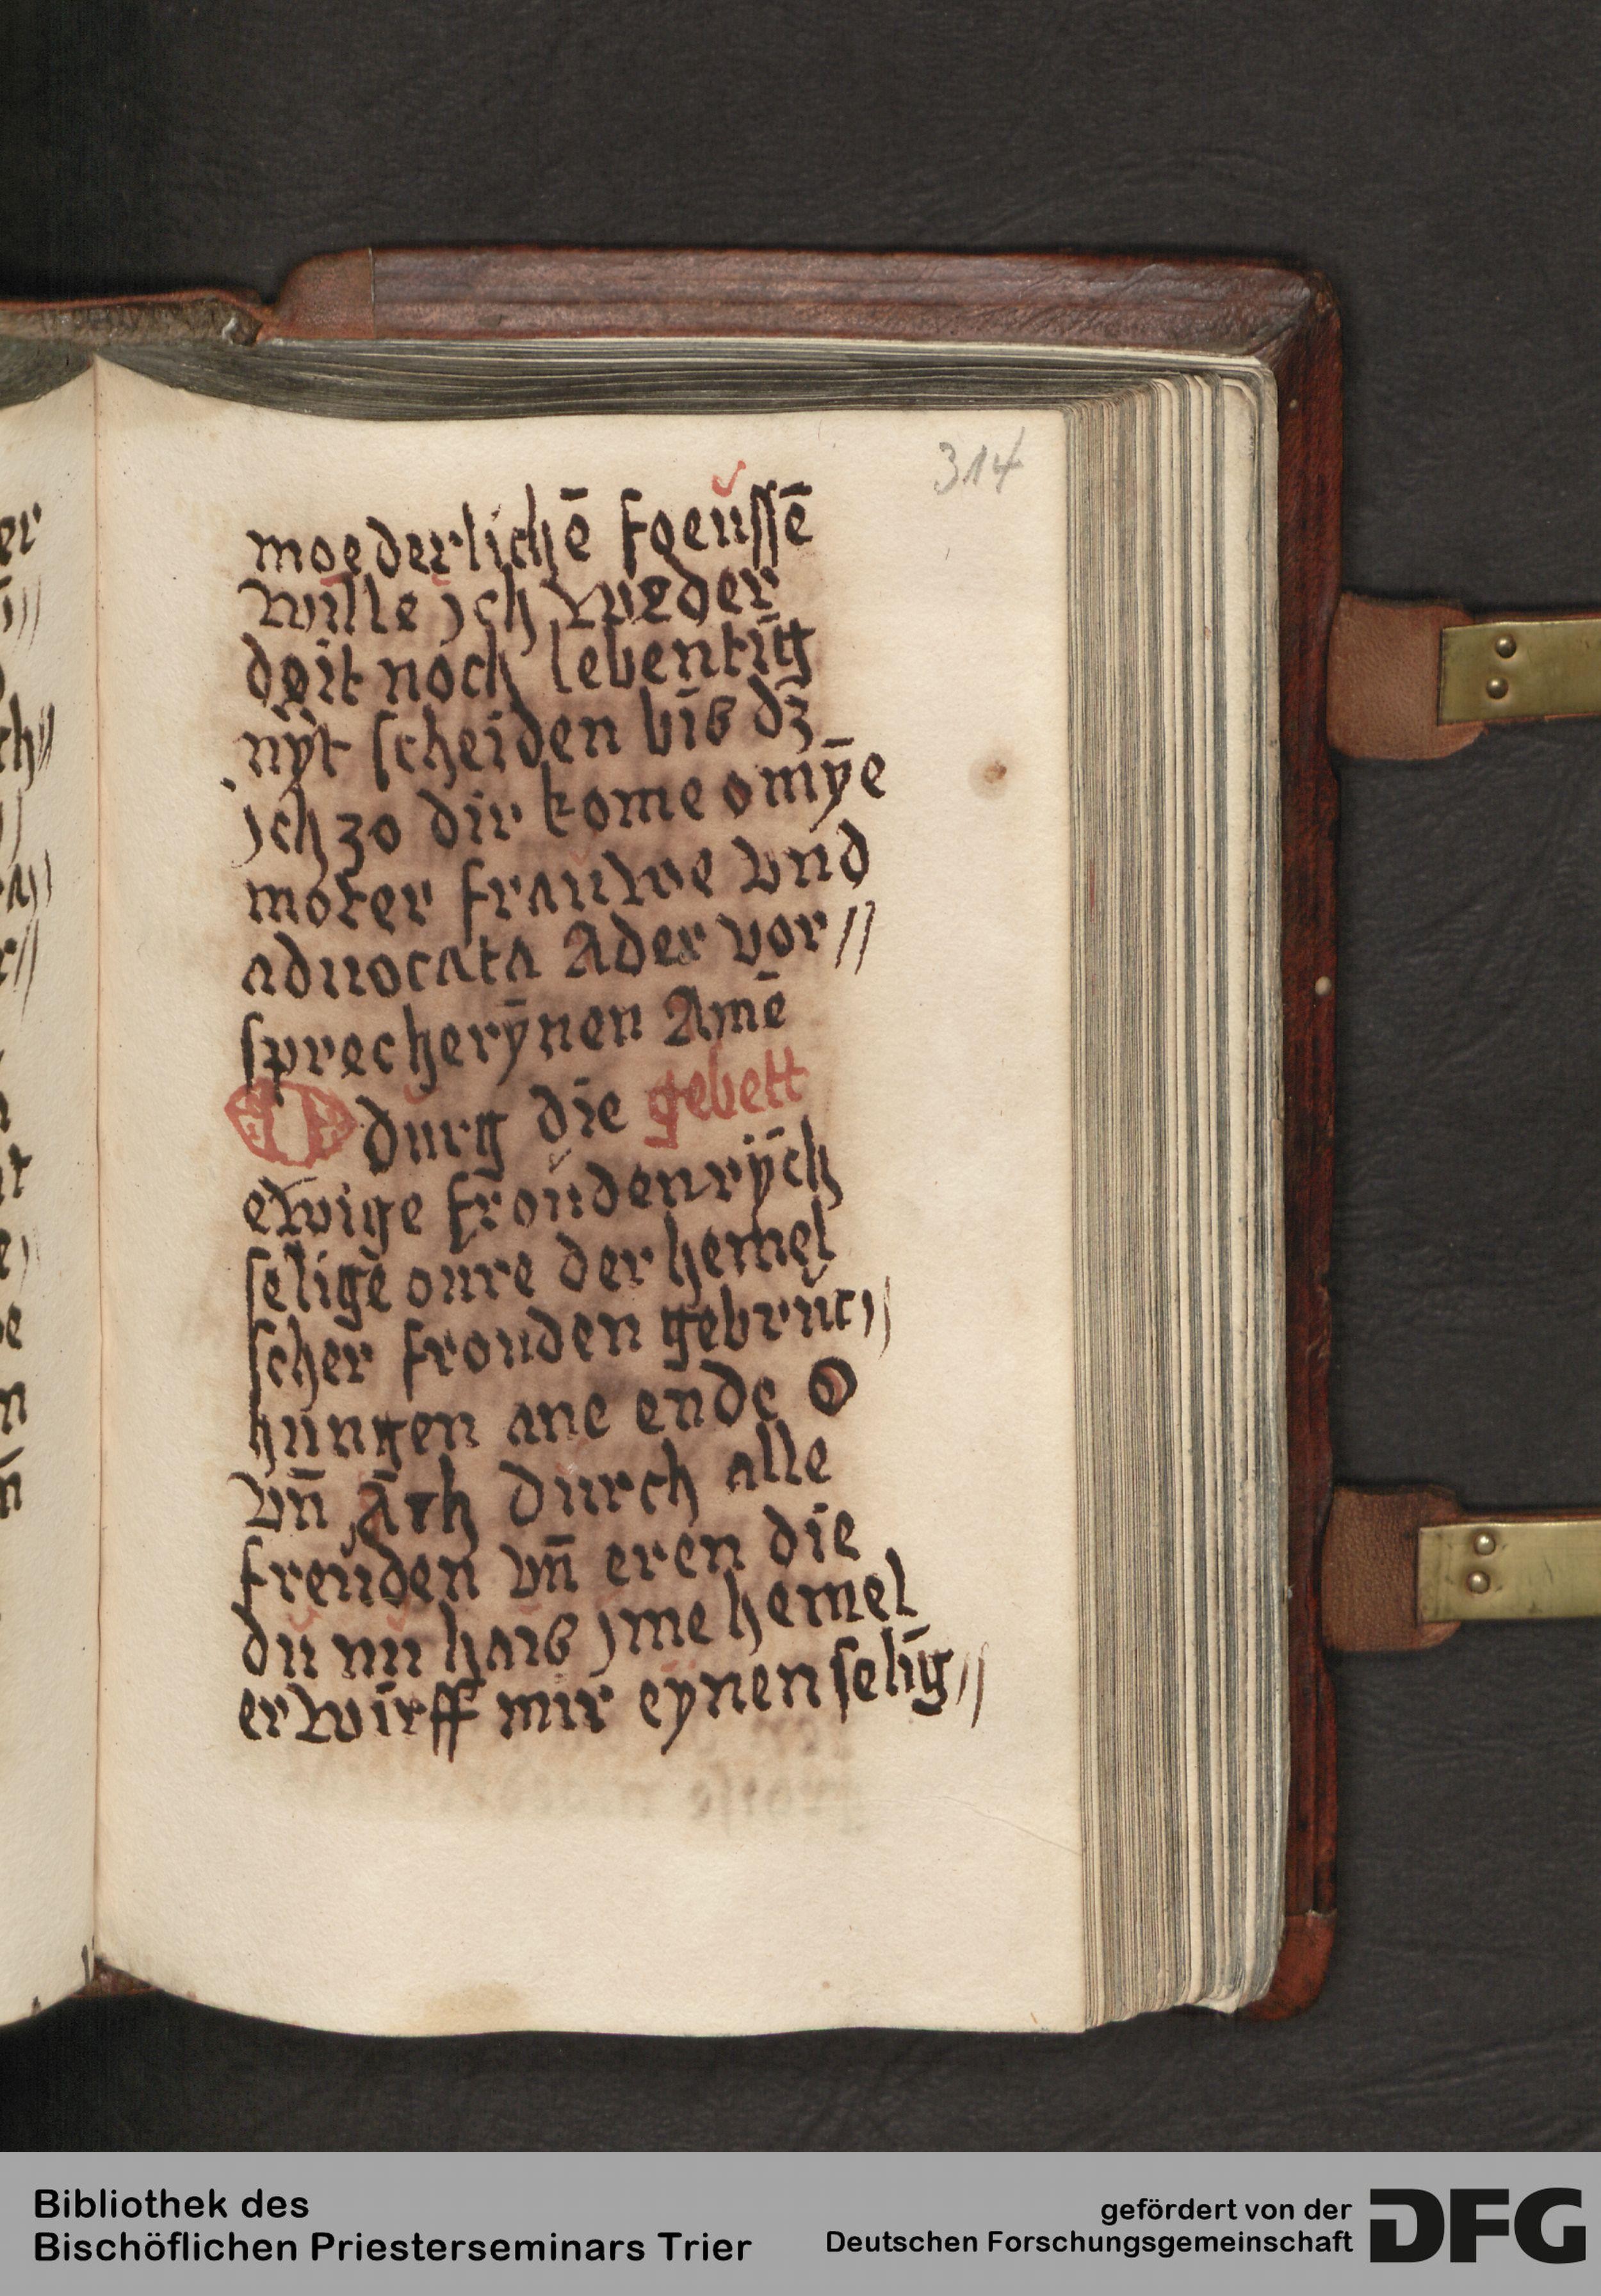 314
moederlichē foeussē
wille jch weder
doit noch lebentig
nÿt scheiden biß dz
jch zo dir kome o mȳe
moter frauwe vnd
aduocata Ader vor//
sprecherȳnen Amē
O durg die gebett
ewige froudenrÿch
selige oure der hemel
scher frouden gebruc//
hungen ane ende O
vn̄ durch alle
freuden vn̄ eren die
du nu haiß jme hemel
erwirff mir eynen selig//
Bibliothek des
Bischöflichen Priesterseminars Trier
gefördert von der
Deutschen Forschungsgemeinschaft
DFG